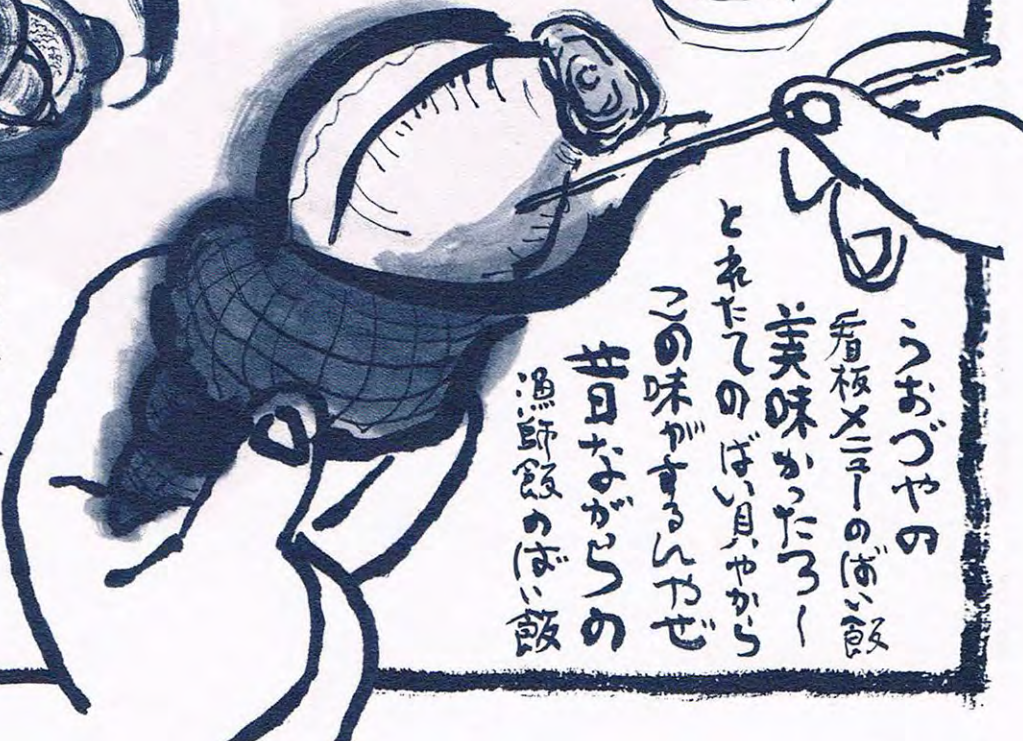 うおづやの
看板メニューのばい飯
美味かったろー
とれたてのばい貝やから
この味がするんやぜ
昔ながらの
漁師飯のばい飯